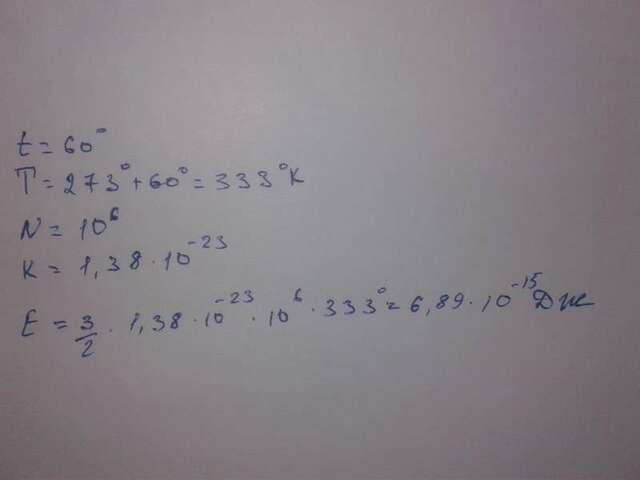 t = 60°
T = 273° + 60° = 333°K
N = 10⁶
K = 1,38 · 10⁻²³
E = 3/2 · 1,38 · 10⁻²³ · 10⁶ · 333° = 6,89 · 10⁻¹⁵ Дж